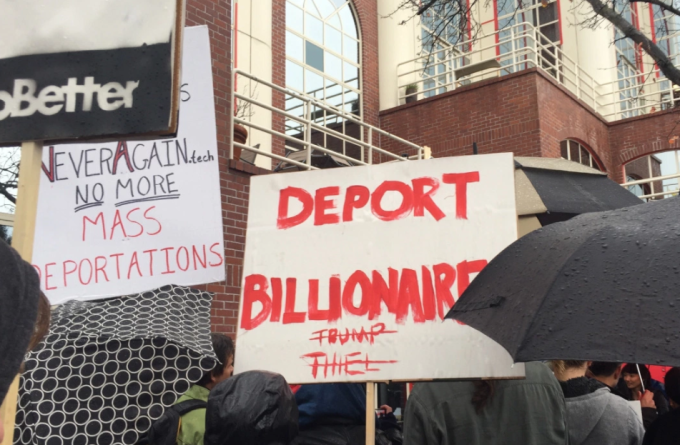 oBetter
NEVERAGAIN.tech
NO MORE
MASS
DEPORTATIONS
DEPORT
BILLIONAIRE
TRUMP
THIEL